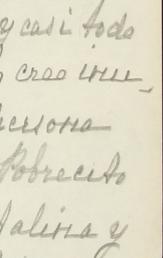 y casi todo
creo inu-
persona
Pobrecito
talina y